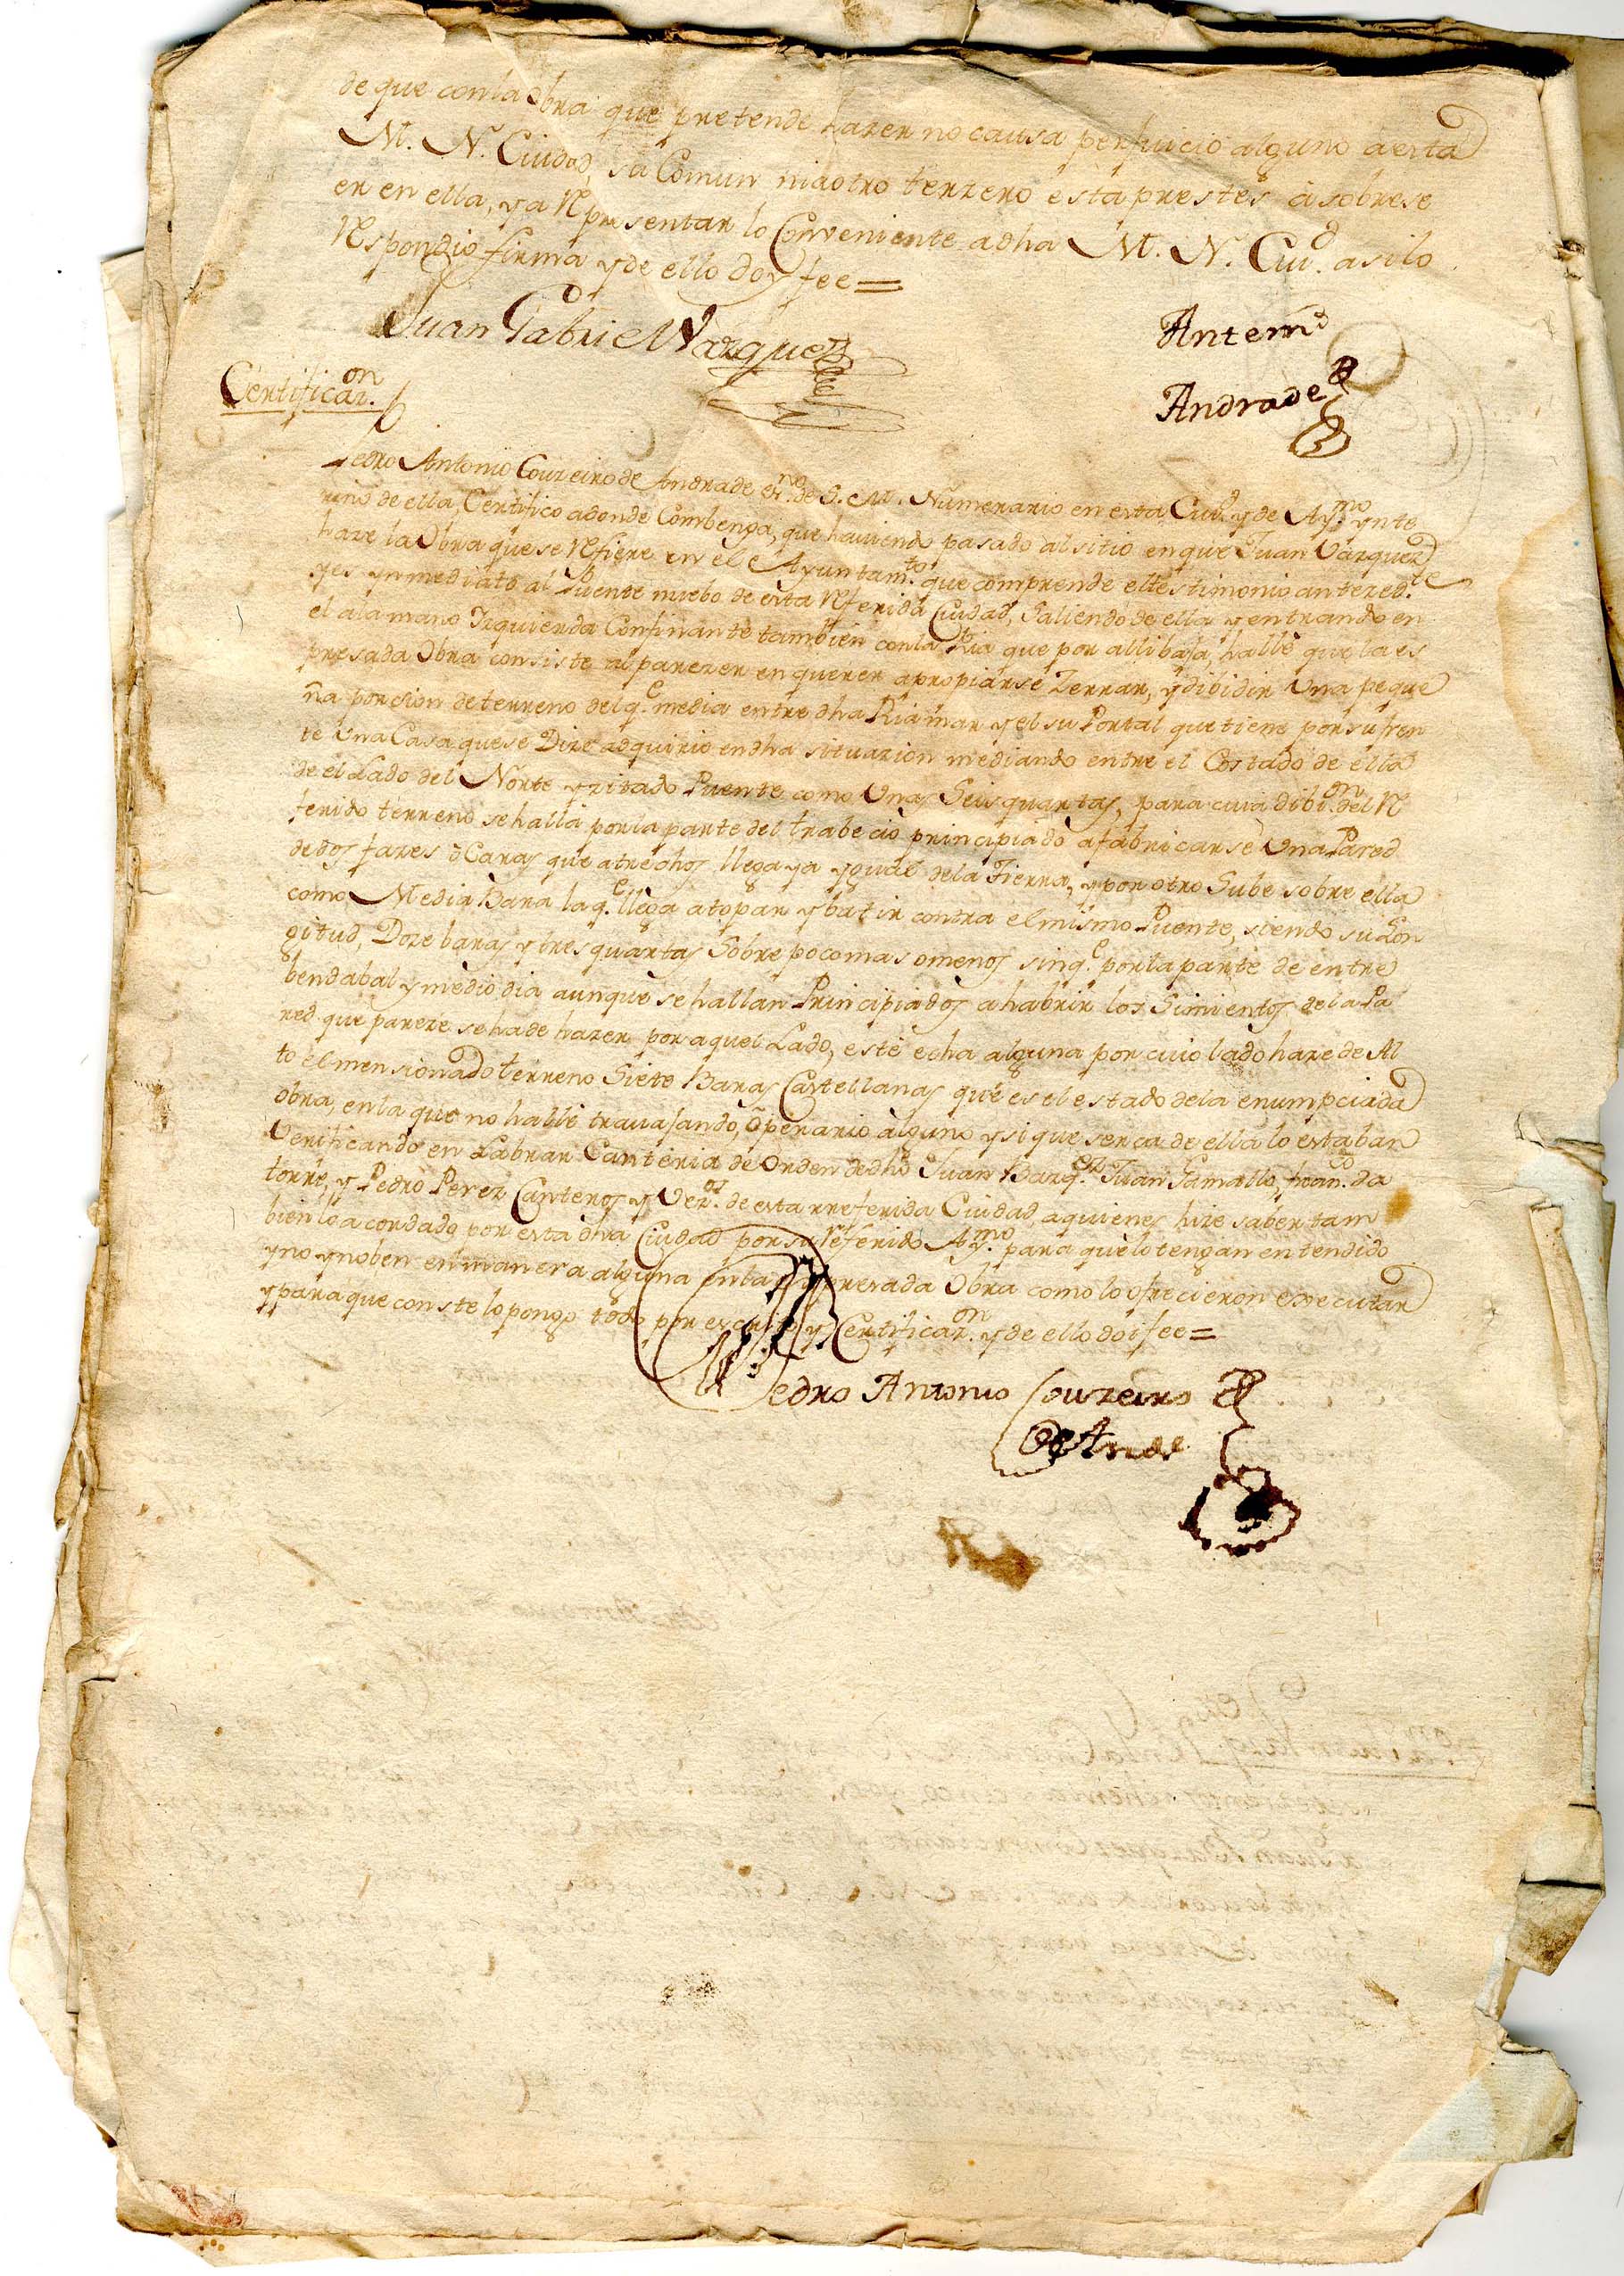 de que con la obra que pretende hazer no causa perjuicio alguno a esta
M. N. Ciudad, su Comun ni a otro terzero esta prestes â sobrese
er en ella, y a Representar lo Conveniente a dha M. N. Ciud. asi lo
Respondio firma y de ello doy fee =
Juan Gabriel Vazquez
Antemi
Andrade
Certificazon.
Pedro Antonio Couzeiro de Andrade esno. de S. M. Numerario en esta Ciud. y de Aymo. ynte
rino de ella, Certifico adonde Combenga, que haviendo pasado al sitio en que Juan Vazquez
haze la Obra que se Refiere en el Ayuntamto. que comprende el testimonio antezedte.
y es ynmediato al Puente nuebo de esta Referida Ciudad, Saliendo de ella y entrando en
el a la mano Izquierda Confinante tambien con la Ria que por alli baja, hallè que la es
presada Obra consiste al parezer en querer apropiarse Zerrar, y dibidir Una peque
ña porcion de terreno del qe. media entre dha Ria mar y el su Portal que tiene por su fren
te Una Casa que se Dize adquirio en dha situazion mediando entre el Costado de ella
de el Lado del Norte y zitado Puente como Unas Seis quartas, para cuia dibion. del Re
ferido terreno se halla por la parte del trabecio principiado a fabricarse Una Pared
de dos fazes ò Caras que a trechos llega ya ygual de la Tierra, y por otro Sube sobre ella
como Media Bara la qe. llega a topar y batir contra el mismo Puente, siendo su Lon
gitud, Doze baras y tres quartas Sobre poco mas o menos sin qe. por la parte de entre
bendabal y medio dia aunque se hallan Principiados a habrir los Simientos de la Pa
red que pareze se ha de hazer por aquel Lado, estè echa alguna por cuio lado haze de Al
to el mensionado terreno Siete Baras Castellanas que es el estado de la enumpciada
obra, en la que no hallè travajando, Operario alguno y si que serca de ella lo estaban
Verificando en Labrar Canteria de Orden de dho Juan Bazqez. Juan Gamallo, Franco. da
torre, y Pedro Perez Canteros y Vezos. de esta rreferida Ciudad, a quienes hize saber tam
bien lo acordado por esta dha Ciudad por su referido Aymo. para que lo tengan entendido
y no ynoben en manera alguna en la espresada Obra como lo ofrecieron executar
y para que conste lo pongo todo por escrito y Certificazon. y de ello doi fee =
Pedro Antonio Couzeiro
de Ande